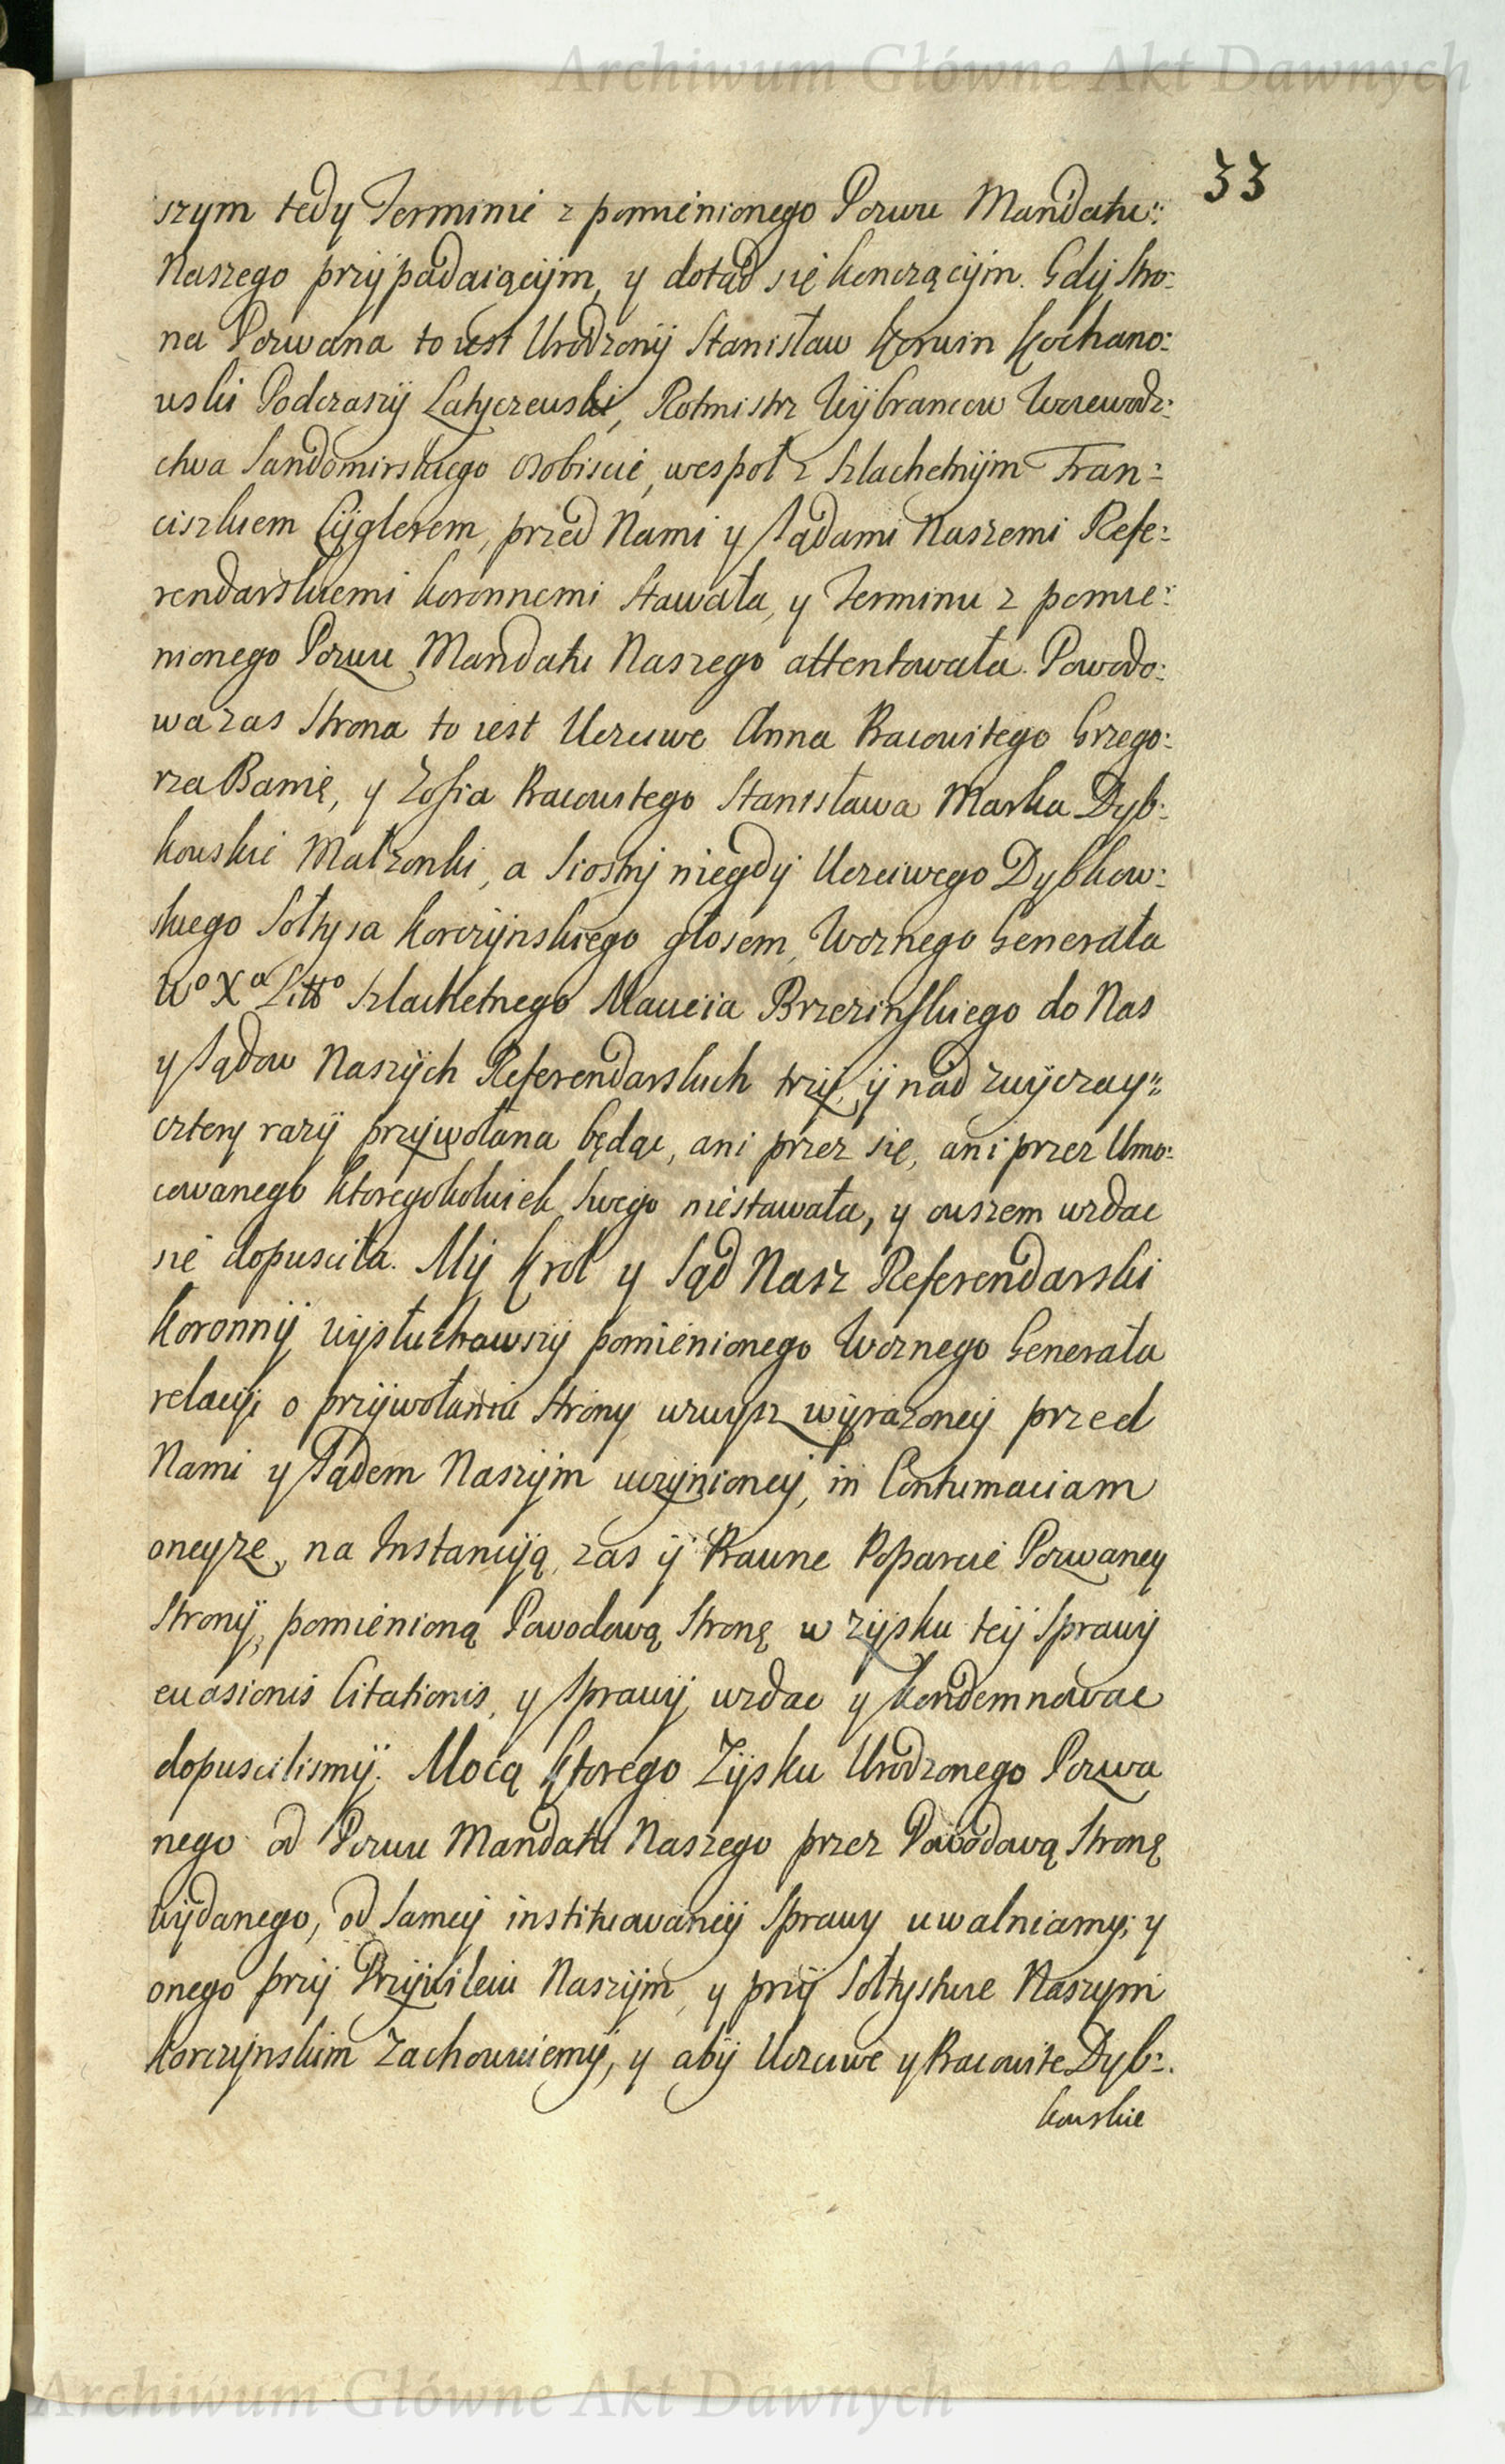 Archiwum Główne Akt Dawnych
33
szym tedy Terminie z pomienionego Pozwu Mandatu:
Naszego przÿpadaiącÿm, y dotąd się konczącÿm. Gdÿ stro:
na Pozwana to iest Urodzonÿ Stanisław Korwin Kochano:
wski Podczaszÿ Latyczewski, Rotmistrz Wÿbrancow Woiewodz:
ctwa Sandomirskiego osobiscie, wespoł z Szlachetnÿm Fran:
ciszkiem Cÿglerem, przed Nami y Sądami Naszemi Refe:
rendarskiemi koronnemi stawała, y Terminu z pomie:
nionego Pozwu Mandatu Naszego attentowała. Powodo:
wa zas Strona to iest Uczciwe Anna Pracowitego Grzego:
rza Banię, y Zofia Pracowitego Stanisława Marka Dyb:
kowskie Małzonki, a Siostrÿ niegdÿ Uczciwego Dybkow:
skiego Sołtysa korczÿnskiego głosem, Woznego Generała
Wº Xª Littº Szlachetnego Macieia Brzezinskiego do Nas
y Sądow Naszÿch Referendarskich trzÿ, ÿ nad zwÿczay:
cztery razÿ przÿwołana będąc, ani przez się, ani przez Umo:
cowanego ktoregokolwiek swego niestawała, y owszem wzdac
się dopusciła. Mÿ Krol y Sąd Nasz Referendarski
Koronnÿ wÿsłuchawszÿ pomienionego Woznego Generała
relacÿi o przÿwołaniu Strony wzwysz wÿrazoneÿ przed
Nami y Sądem Naszÿm uczÿnioneÿ, in Contumaciam
oneyze, na Instancÿą, zas ÿ Prawne Poparcie Pozwaney
Stronÿ, pomienioną Powodową Stronę w zÿsku teÿ Sprawÿ
euasionis Citationis, y Sprawÿ wzdac y kondemnowac
dopuscilismÿ. Mocą ktorego Zÿsku Urodzonego Pozwa
nego od Pozwu Mandatu Naszego przez Powodową Stronę
wÿdanego, od sameÿ instituowaneÿ Sprawy uwalniamy; y
onego przÿ Przÿwileiu Naszÿm, y przÿ Sołtystwie Naszym
korczynskim zachowuiemÿ, y abÿ Uczciwe y Pracowite Dyb:
kowskie
Archiwum Główne Akt Dawnych